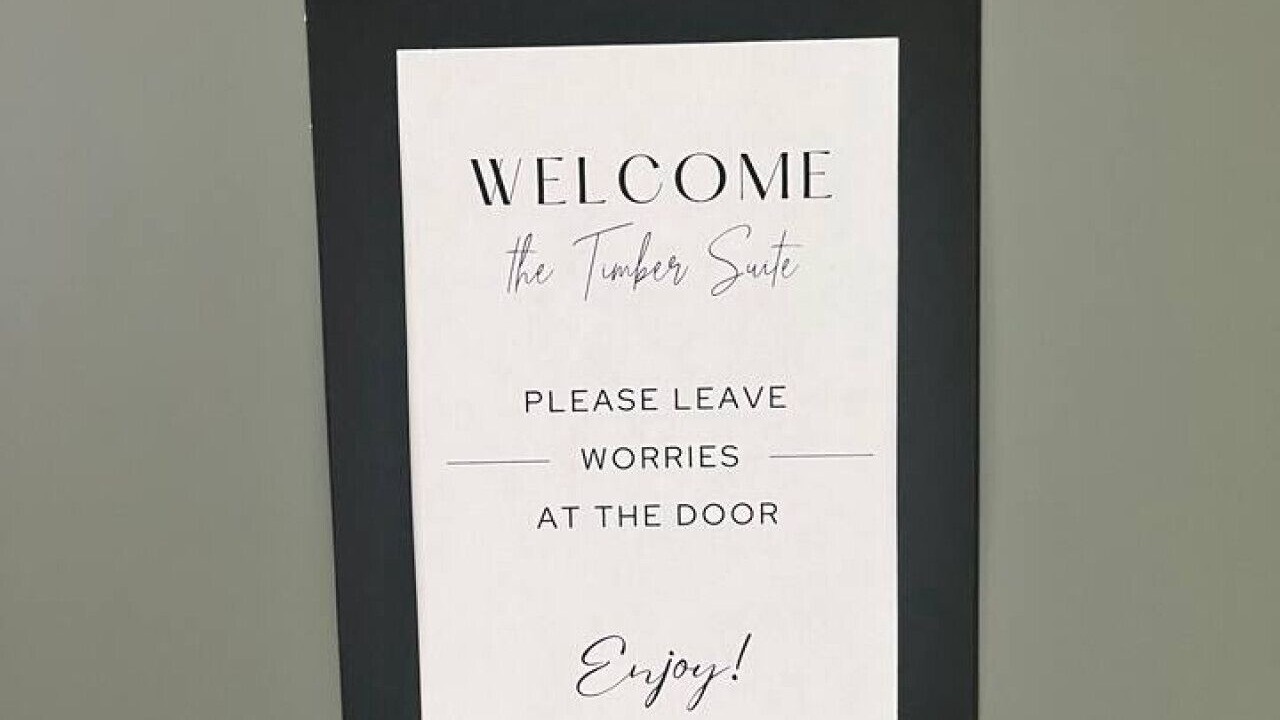 WELCOME
the Timber Suite
PLEASE LEAVE
WORRIES
AT THE DOOR
Enjoy!